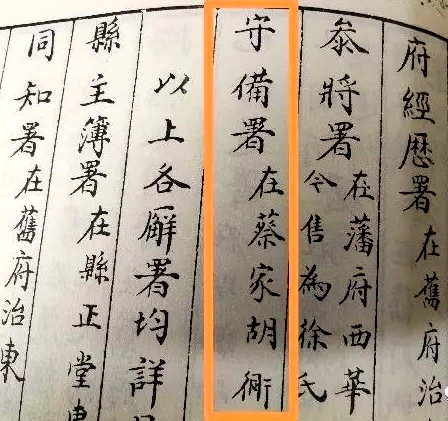 府經歷署在舊府治
叅將署在藩府西華
今售為徐氏
守備署在蔡家胡衕
以上各廨署均詳
縣主簿署在縣正堂東
同知署在舊府治東